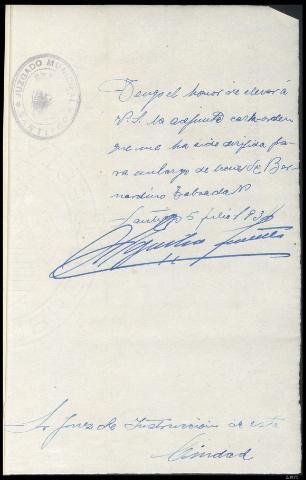 JUZGADO MUNICIPAL
Tengo el honor de elevar á
V.S. la adjunta carta-orden
que me ha sido dirigida pa
ra embargo de bienes de Ber-
nardino Taboada
Santiago 5 julio 1
Sr Juez de Instrucción de esta
Ciudad